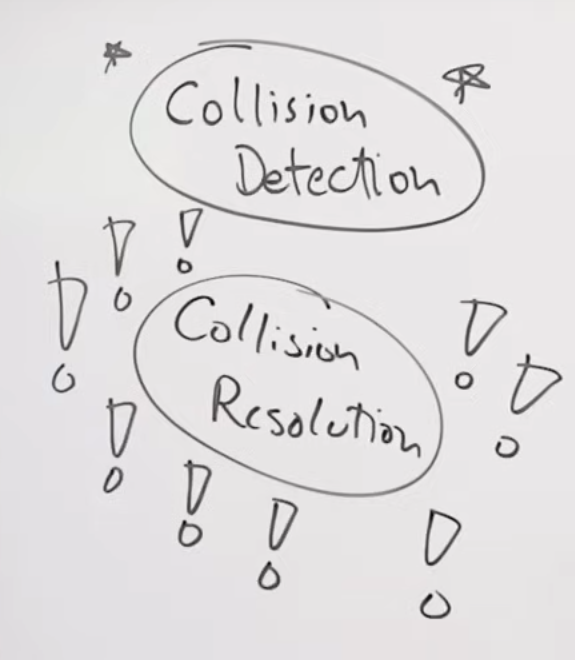 Collision
Detection
Collision
Resolution